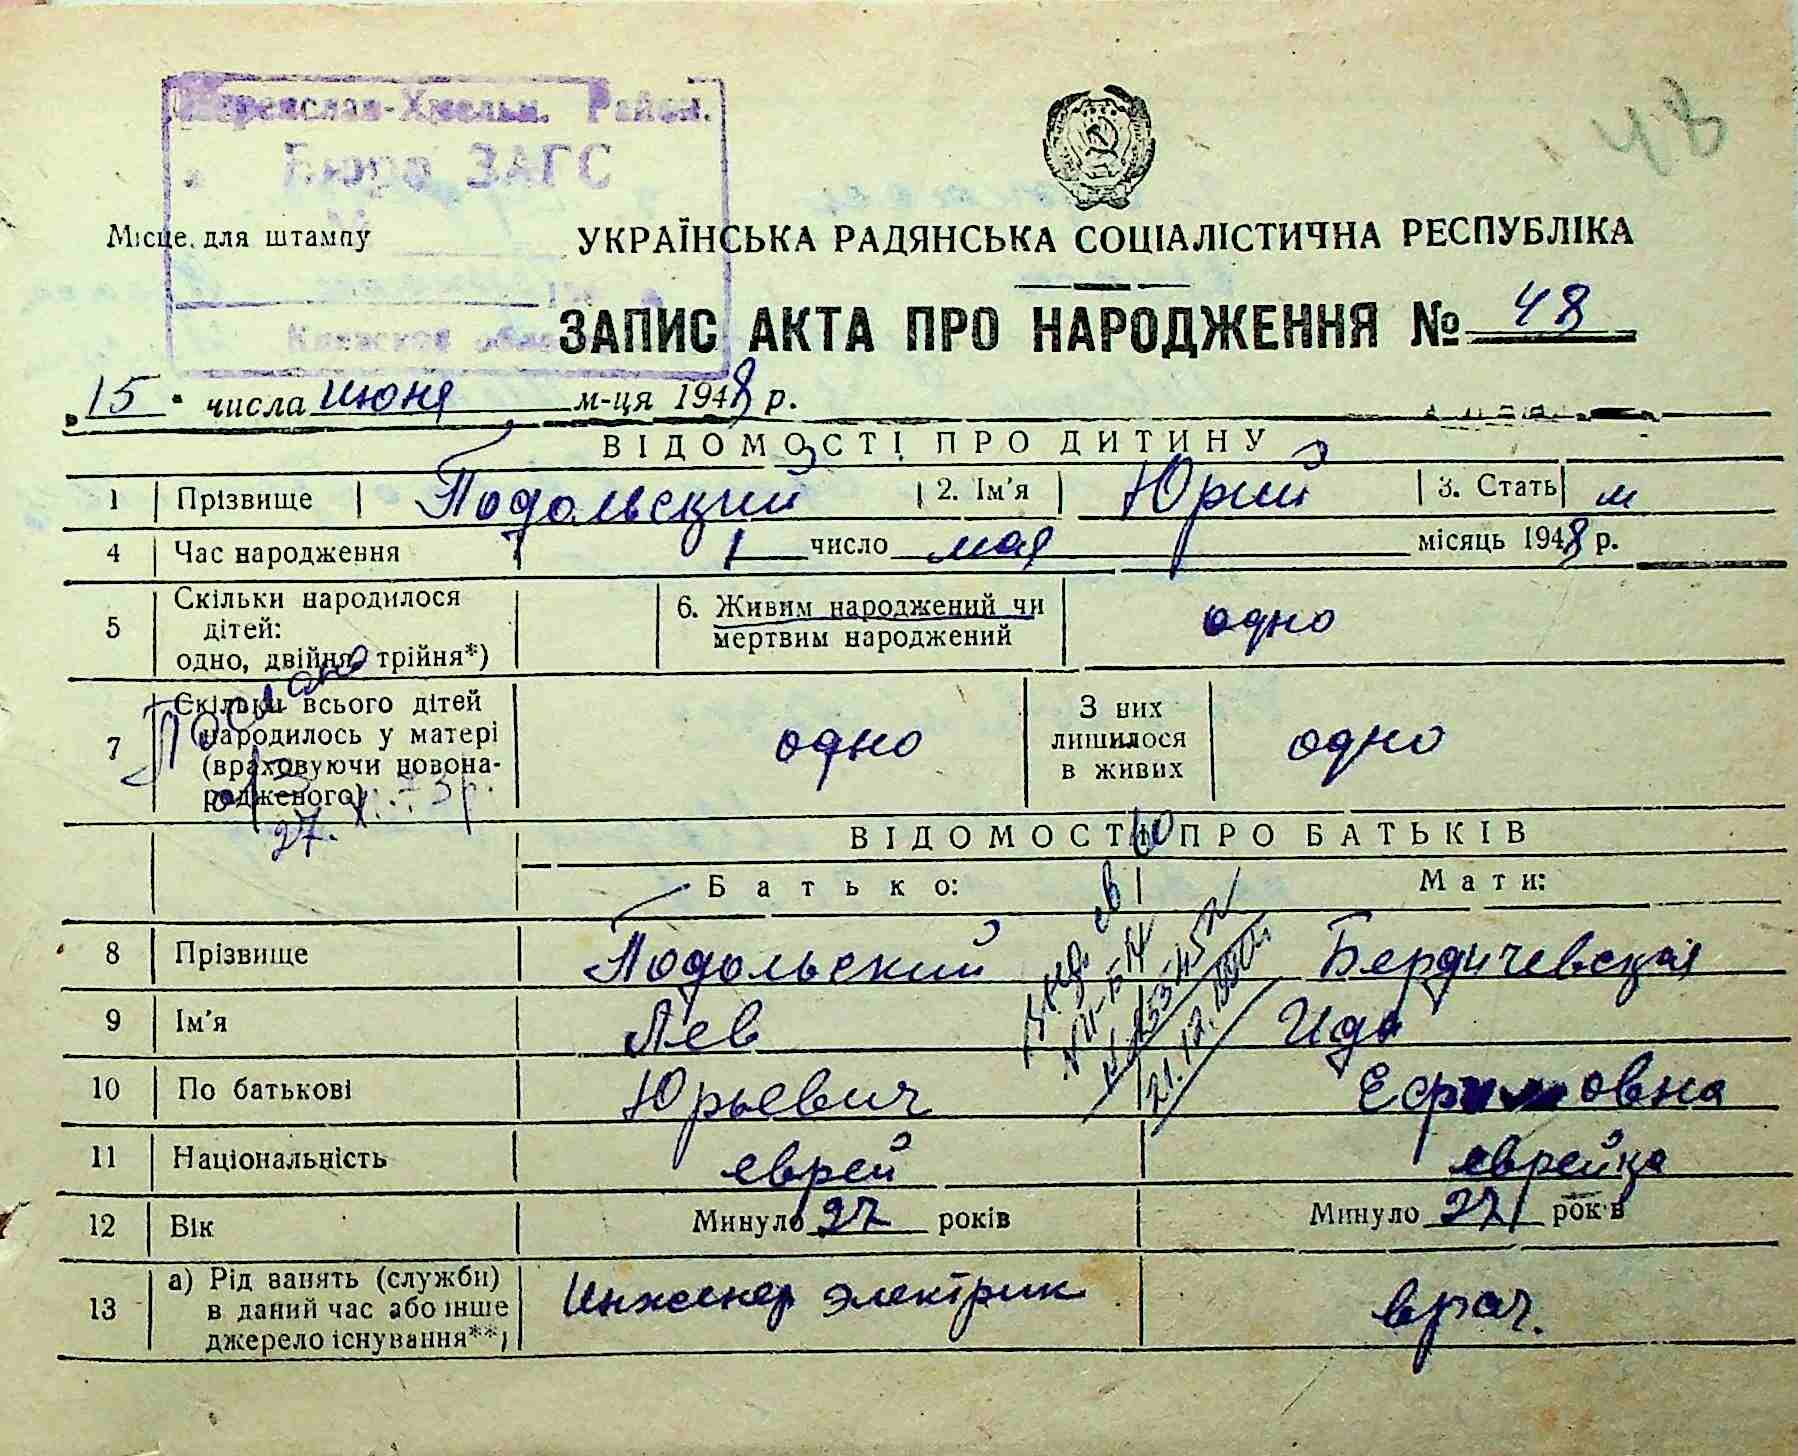 48
Переяслав-Хмельн. Район.
Бюро ЗАГС
Киевской
Місце для штампу
УКРАЇНСЬКА РАДЯНСЬКА СОЦІАЛІСТИЧНА РЕСПУБЛІКА
ЗАПИС АКТА ПРО НАРОДЖЕННЯ № 48
„15" числа июня м-ця 1948 р.
ВІДОМОСТІ ПРО ДИТИНУ
1 Прізвище Подольский 2. Ім'я Юрий 3. Стать м
4 Час народження 1 число мая місяць 1948 р.
5 Скільки народилося
дітей:
одно, двійня, трійня*)
6. Живим народжений чи
мертвим народжений
одно
7 Скільки всього дітей
народилось у матері
(враховуючи новона-
родженого)
одно
З них
лишилося
в живих
одно
27.
ВІДОМОСТІ ПРО БАТЬКІВ
Батько: Мати:
8 Прізвище Подольский Бердичевская
9 Ім'я Лев Ида
10 По батькові Юрьевич Ефимовна
11 Національність еврей еврейка
12 Вік Минуло 27 років Минуло 27 років
13 а) Рід занять (служби)
в даний час або інше
джерело існування**)
Инженер электрик врач.